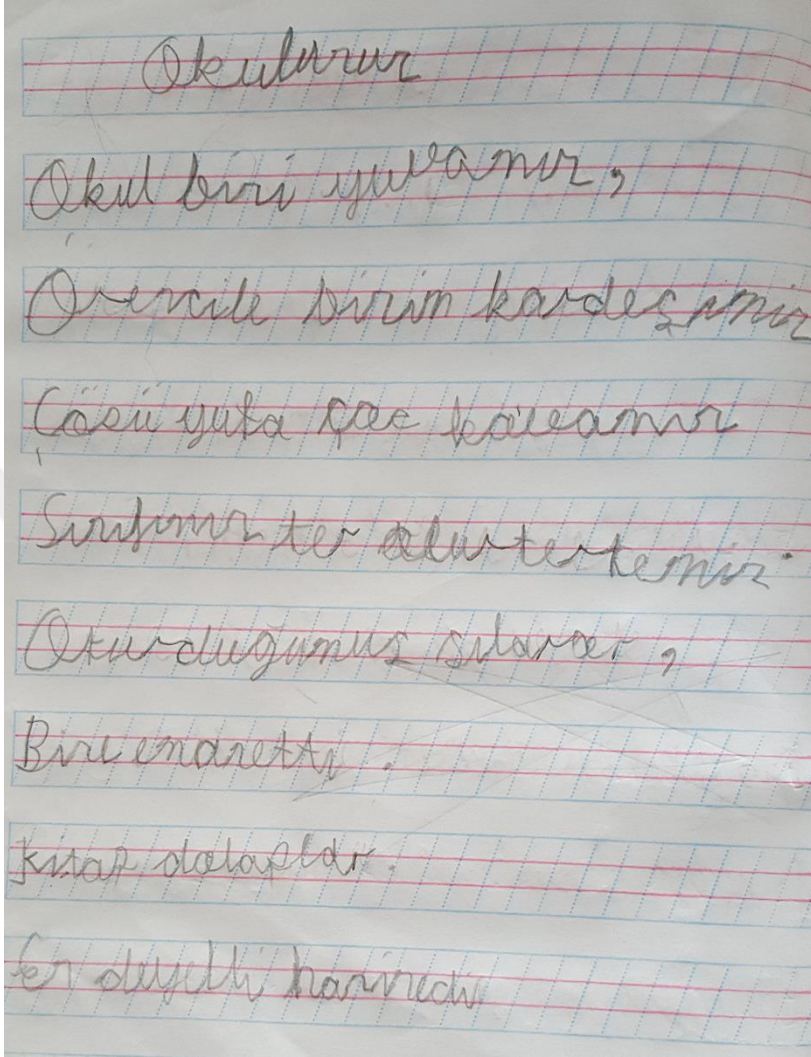 Okulurur
Okul biri yuvamız,
Örencile birim kardeşimiz
yuta kaleamız
Sınıfımız ter olur tertemiz.
Oturduğumus sılarar,
Bire emanetti.
kitap dolaplar.
En deyelli hazinedi